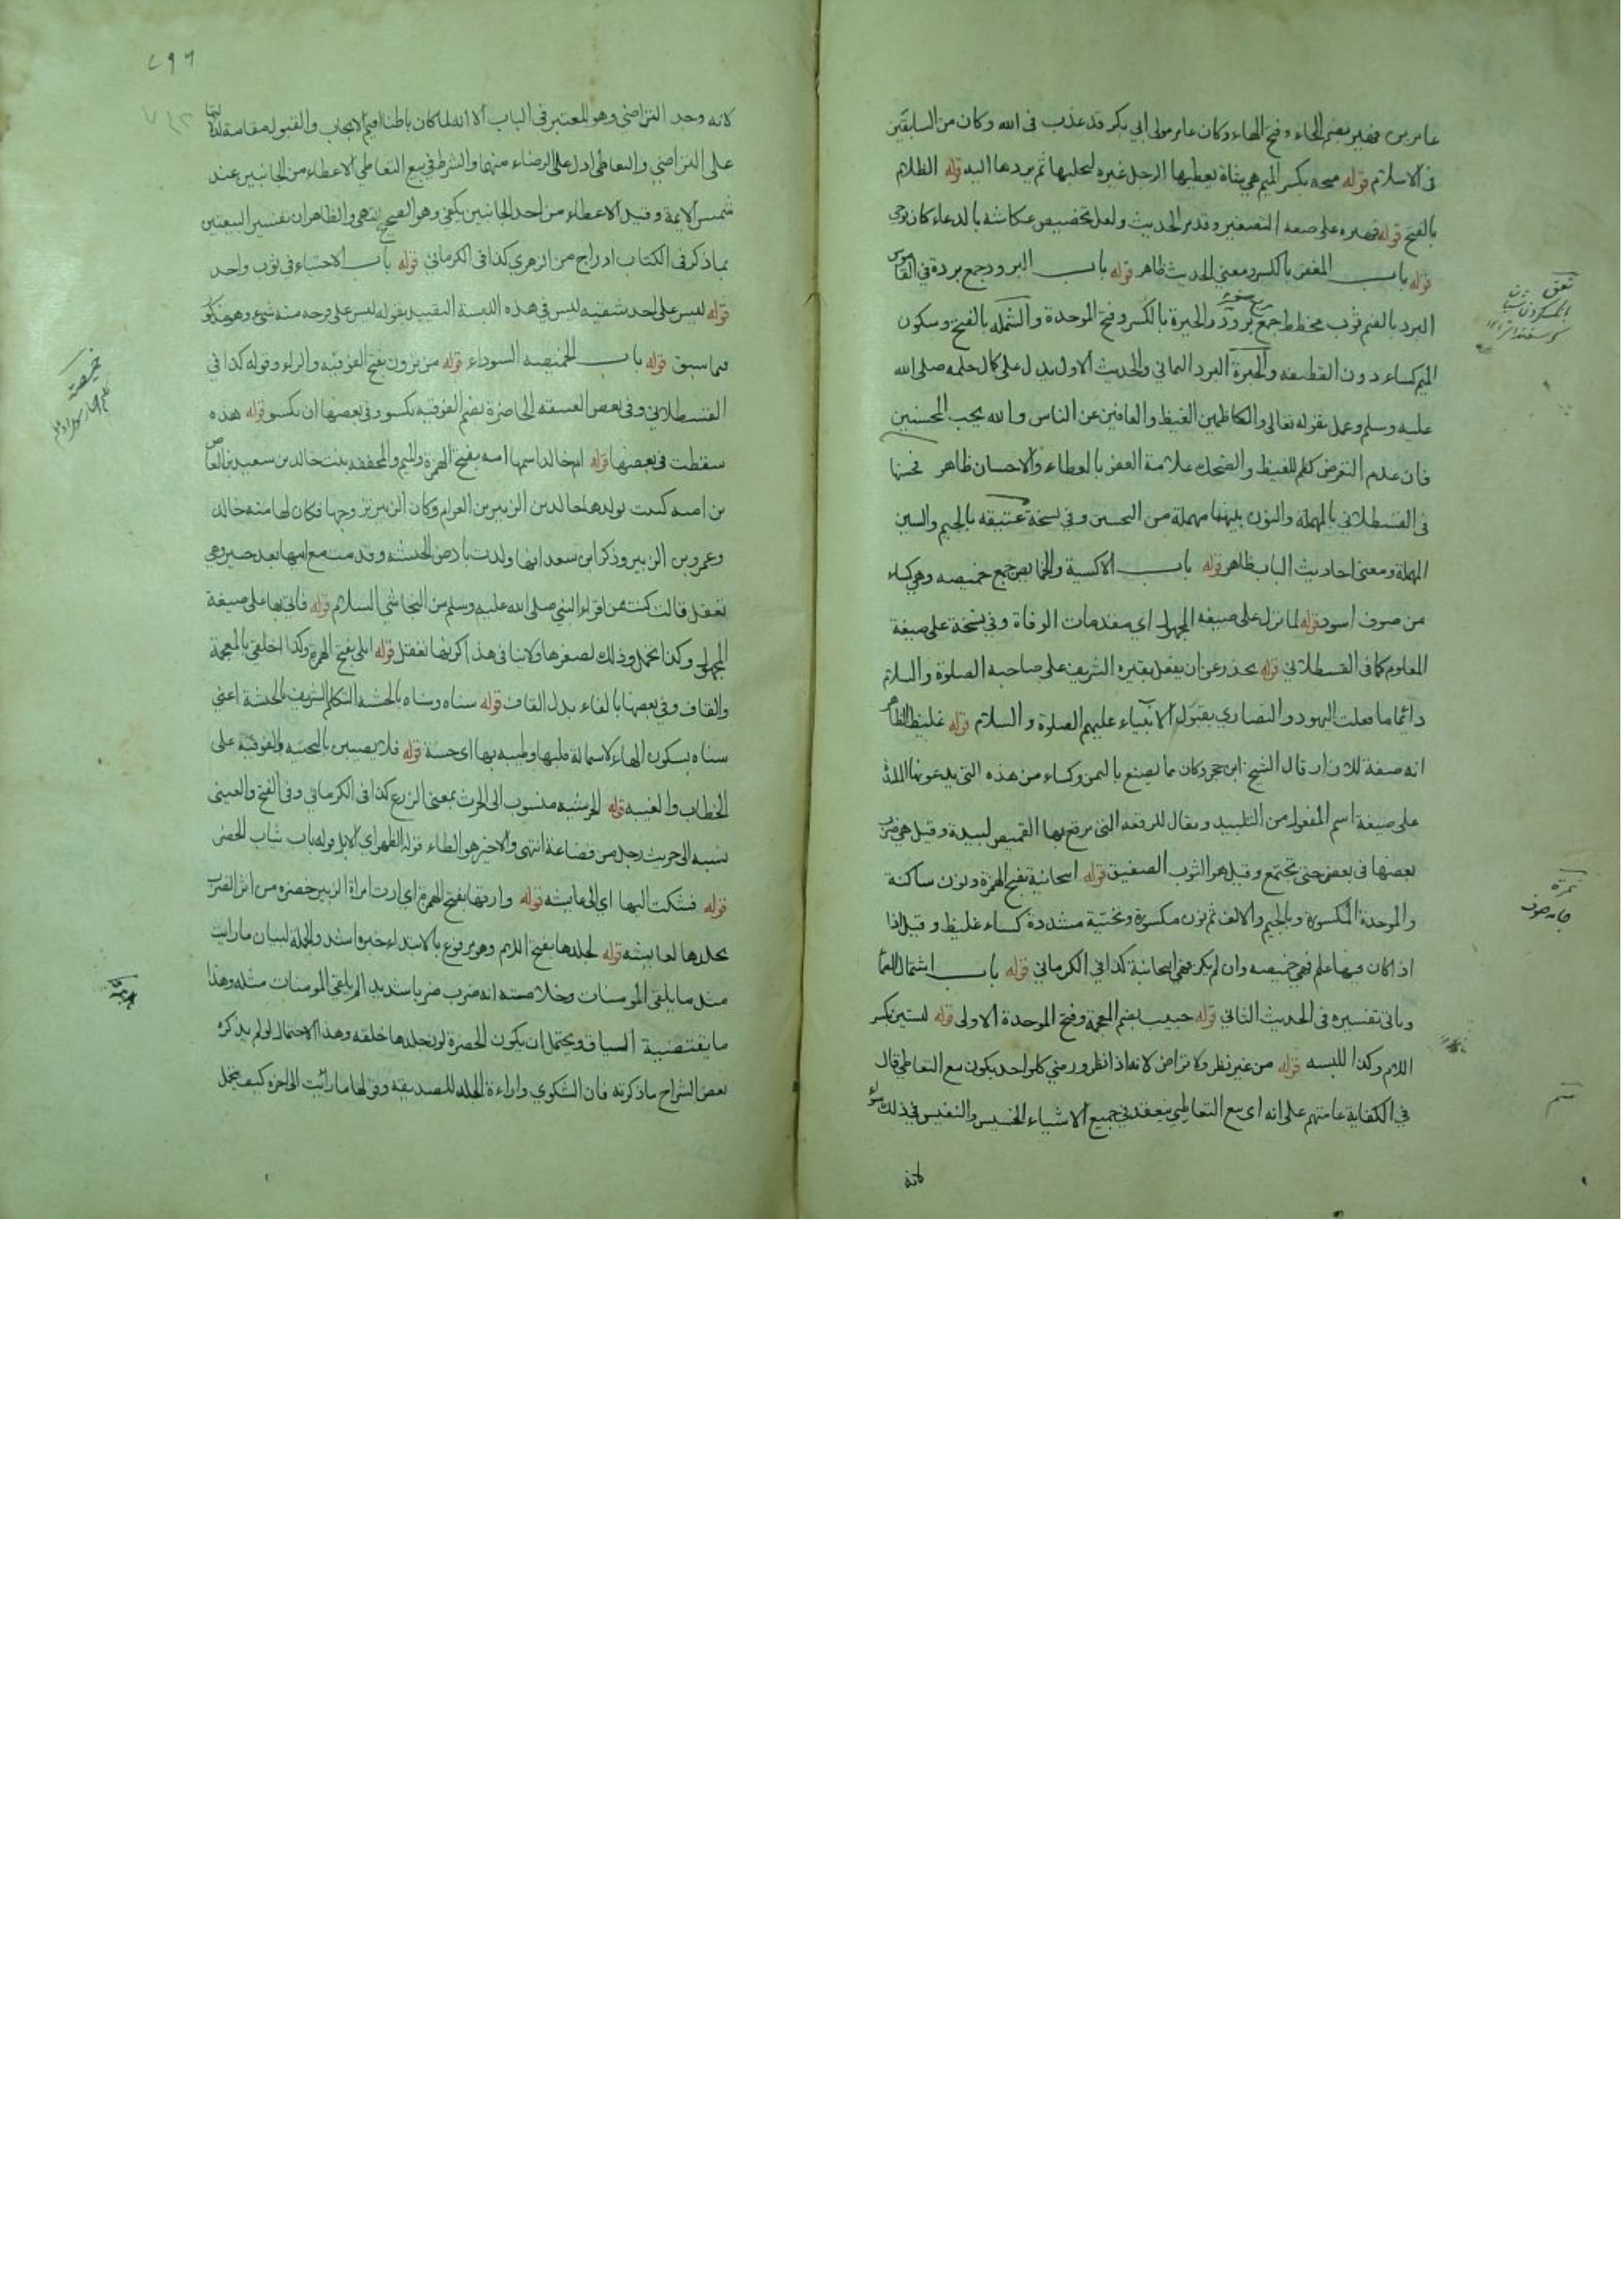 عامر بن فهير بضم الفاء وفتح الهاء وكان عامر مولى ابي بكر قد عذب فى الله وكان من السابقين
فى الاسلام قوله منحه بكسر الميم هي شاة يعطيها الرجل غيره ليحلبها ثم يردها اليه قوله الظلام
بالفتح قوله على صيغه التصغير وقد مر الحديث ولعل تخصيص عكاشه بالدعاء كان بوحي
قوله باب المغفر بالكسر ومعنى الحديث ظاهر قوله باب البرود جمع بردة في القاموس
البرد بالضم ثوب مخطط جمع برود والحبرة بالكسر وفتح الموحدة والشمله بالفتح وسكون
الميم كساء دون القطيفه والحبرة البرد اليماني والحديث الاول يدل على كمال حلمه صلى الله
عليه وسلم وعمل بقوله تعالى والكاظمين الغيظ والعافين عن الناس والله يحب المحسنين
فان عدم التعرض كظم للغيظ والضحك علامة العفو بالعطاء والاحسان ظاهر
فى القسطلاني بالمهملة والنون بينهما مهملة من التحسين وفي نسخة بالجيم والسين
المهملة ومعنى احاديث الباب ظاهر قوله باب الاكسية والخمايص جمع خميصه وهي كساء
من صوف اسود قوله لما نزل على صيغه المجهول اي مقدمات الوفاة وفي نسخة على صيغة
المعلوم كما فى القسطلاني قوله يحذر عن ان يفعل بقبره الشريف على صاحبه الصلوة والسلام
دائما ما فعلت اليهود والنصاري بقبور الانبياء عليهم الصلوة والسلام قوله غليظ الظاهر
انه صفة للازار قال الشيخ ابن حجر وكان مما يصنع باليمن وكساء من هذه التى يدعونها الملبدة
على صيغة اسم المفعول من التلبيد ويقال للرقعه التى يرقع بها القميص لبيدة وقيل هي ضرب
بعضها فى بعض حتى يجتمع وقيل هو الثوب الصفيق قوله انبجانية بفتح الهمزة ونون ساكنة
والموحدة المكسورة وبالجيم والالف ثم نون مكسورة وتحتية مشددة كساء غليظ وقيل اذا
اذا كان فيها علم فهي خميصه وان لم يكن فهي انبجانية كذا في الكرماني قوله باب اشتمال الصماء
وياتى تفسيره فى الحديث الثاني قوله خبيب بضم المعجمة وفتح الموحدة الاولى قوله لبستين بكسر
اللام وكذا اللبسه قوله من غير نظر ولا تراض لانه اذا نظر ورضي كل واحد يكون بيع التعاطي قال
في الكفاية عامتهم على انه اى بيع التعاطي ينعقد في جميع الاشياء الخسيس والنفيس في ذلك سواء
لانه
نمرة
جامه صوف
٢٩٦
لانه وجد التراضي وهو المعتبر فى الباب الا انه لما كان باطنا اقيم الايجاب والقبول مقامه لدلالتهما
على التراضي والتعاطى ادل على الرضاء منهما والشرط في بيع التعاطي الاعطاء من الجانبين عند
شمس الايمة وقيل الاعطاء من احد الجانبين يكفي وهو الصحيح انتهى والظاهر ان تفسير البيعتين
بما ذكر فى الكتاب ادراج من الزهري كذا فى الكرماني قوله باب الاحتباء في ثوب واحد
قوله ليس على احد شقيه ليس في هذه اللبسة التقييد بقوله ليس على فرجه منه شيء وهو مذكور
فيما سبق قوله باب الخميصه السوداء قوله من ترون بفتح الفوقيه والراء وقوله كذا في
القسطلاني وفى بعض النسخه الحاضرة بضم الفوقيه نكسو وفي بعضها ان نكسو قوله هذه
سقطت فى بعضها قوله ام خالد اسمها امه بفتح الهمزة والميم والمخففه بنت خالد بن سعيد بن العاص
بن اميه كنيت بولدها خالد بن الزبير بن العوام وكان الزبير تزوجها فكان لها منه خالد
وعمرو بن الزبير وذكر ابن سعد انها ولدت بارض الحبشه وقدمت مع ابيها بعد خيبر وهي
تعقل قالت كنت ممن اقراء النبي صلى الله عليه وسلم من النجاشي السلام قوله فاتى بها على صيغة
المجهول وكذا تحمل وذلك لصغرها ولا ينافى هذا كونها تعقل قوله ابلى بفتح الهمزة وكذا اخلقي بالمعجمة
والقاف وفى بعضها بالفاء بدل القاف قوله سناه وسناه بالحبشه التكلم الشريف بالحبشة اعنى
سناه بسكون الهاء لاستمالة قلبها وطيبه بها اى حسنة قوله فلا يصيبن بالتحتيه والفوقيه على
الخطاب والغيبه قوله الحريثيه منسوب الى الحرث بمعنى الزرع كذا فى الكرماني وفى الفتح والعيني
نسبه الى حريث رجل من قضاعة انتهى والاخير هو الظاهر قوله الظهر اي الابل قوله باب ثياب الخضر
قوله فشكت اليها اي الى عايشه قوله وارتها بفتح الهمزة اي ارت امراة الزبير خضرة من اثر الضرب
بجلدها لعايشه قوله لجلدها بفتح اللام وهو مرفوع بالابتداء خبره اشد والجملة لبيان ما رايت
مثل ما يلقى المومنات وخلاصته انه ضرب ضربا شديدا لم يلقى المومنات مثله وهذا
ما يقتضيه السياق ويحتمل ان يكون الخضرة لون جلدها خلقه وهذا الاحتمال لو لم يذكره
بعض الشراح ما ذكرته فان الشكوي واراءة الجلد للصديقه وقولها ما رائيت الى اخره كيف يحمل
خميصة